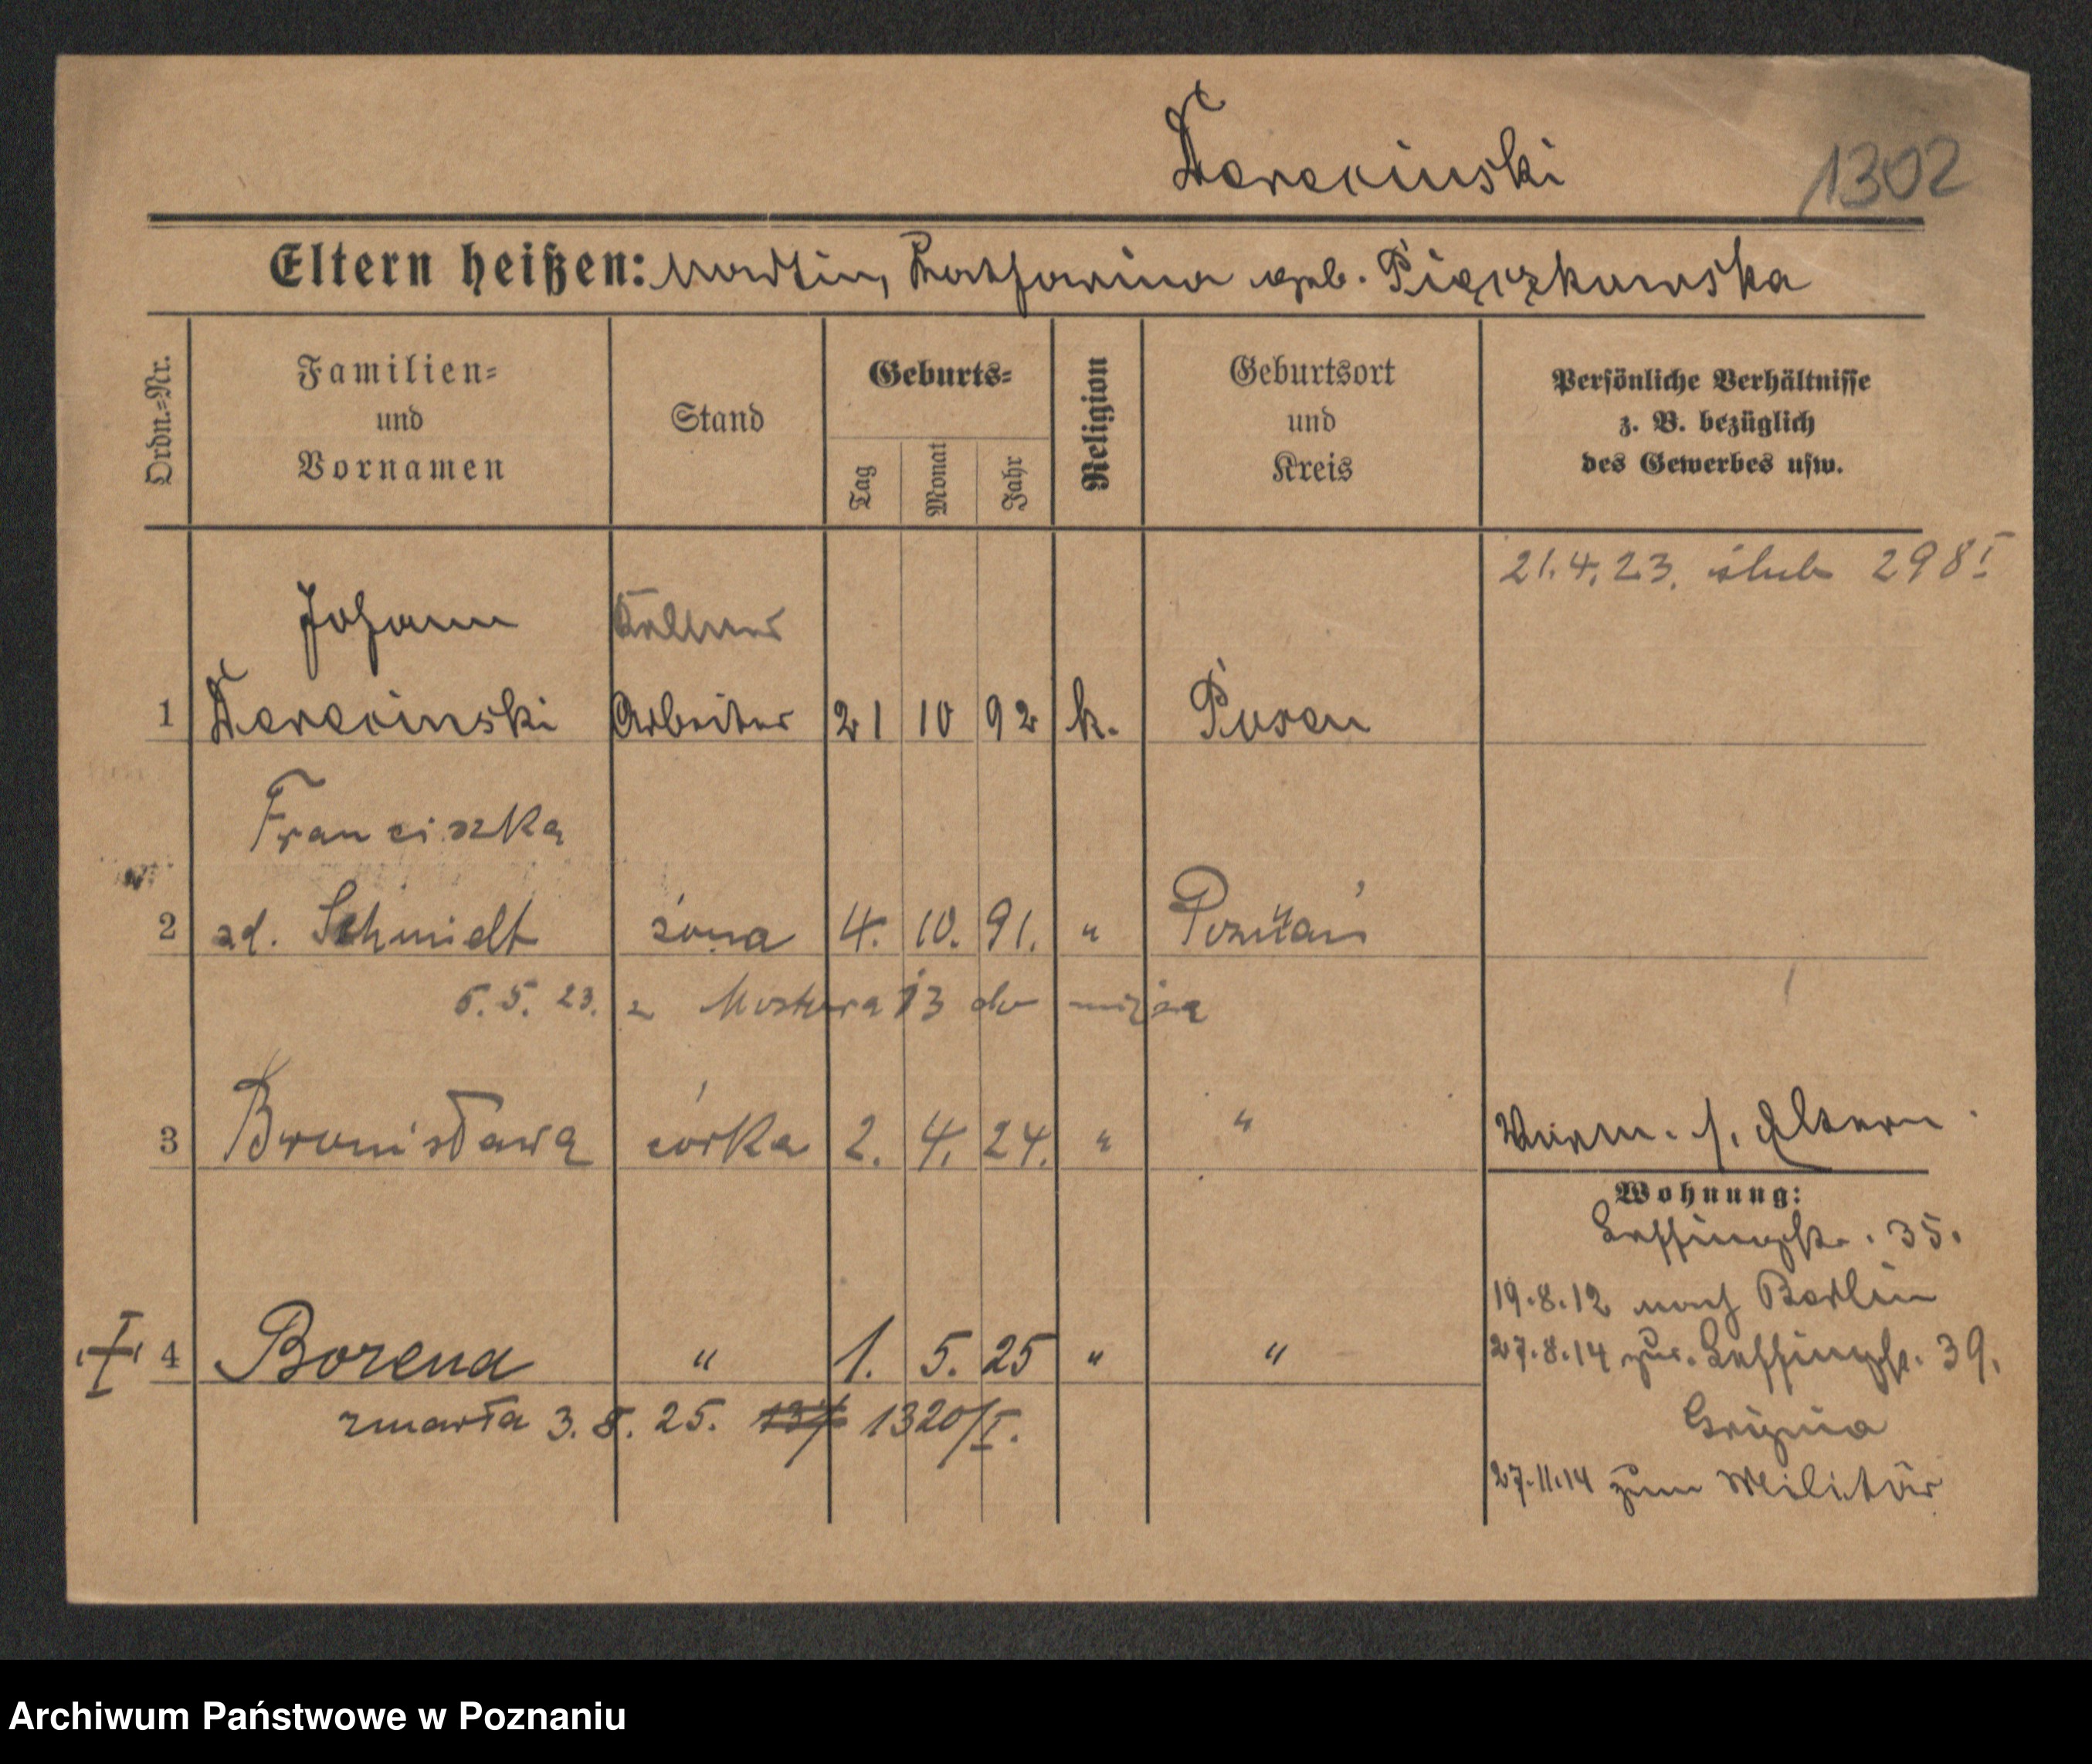 Derecinski
1302
Eltern heißen: Martin, Katharina geb. Pięczkowska
Ordn.=Nr.
Familien=
und
Vornamen
Stand
Geburts=
Tag
Monat
Jahr
Religion
Geburtsort
und
Kreis
Persönliche Verhältnisse
z. B. bezüglich
des Gewerbes usw.
21.4.23. ślub 298 I
Johann Kellner
1 Derecinski Arbeiter 21 10 92 k. Posen
Franciszka
2 zd. Schmidt żona 4. 10. 91. " Poznań
5. 23. z Mostowa 13 do męża
3 Bronisława córka 2. 4. 24. " "
Eltern
Wohnung:
Lessingstr. 35.
19.8.12 nach Berlin
27.8.14 zur. Lessingstr. 39.
27.11.14 zum Militär
4 Borena " 1. 5. 25 " "
zmarła 3. 8. 25. 1320/I.
Archiwum Państwowe w Poznaniu